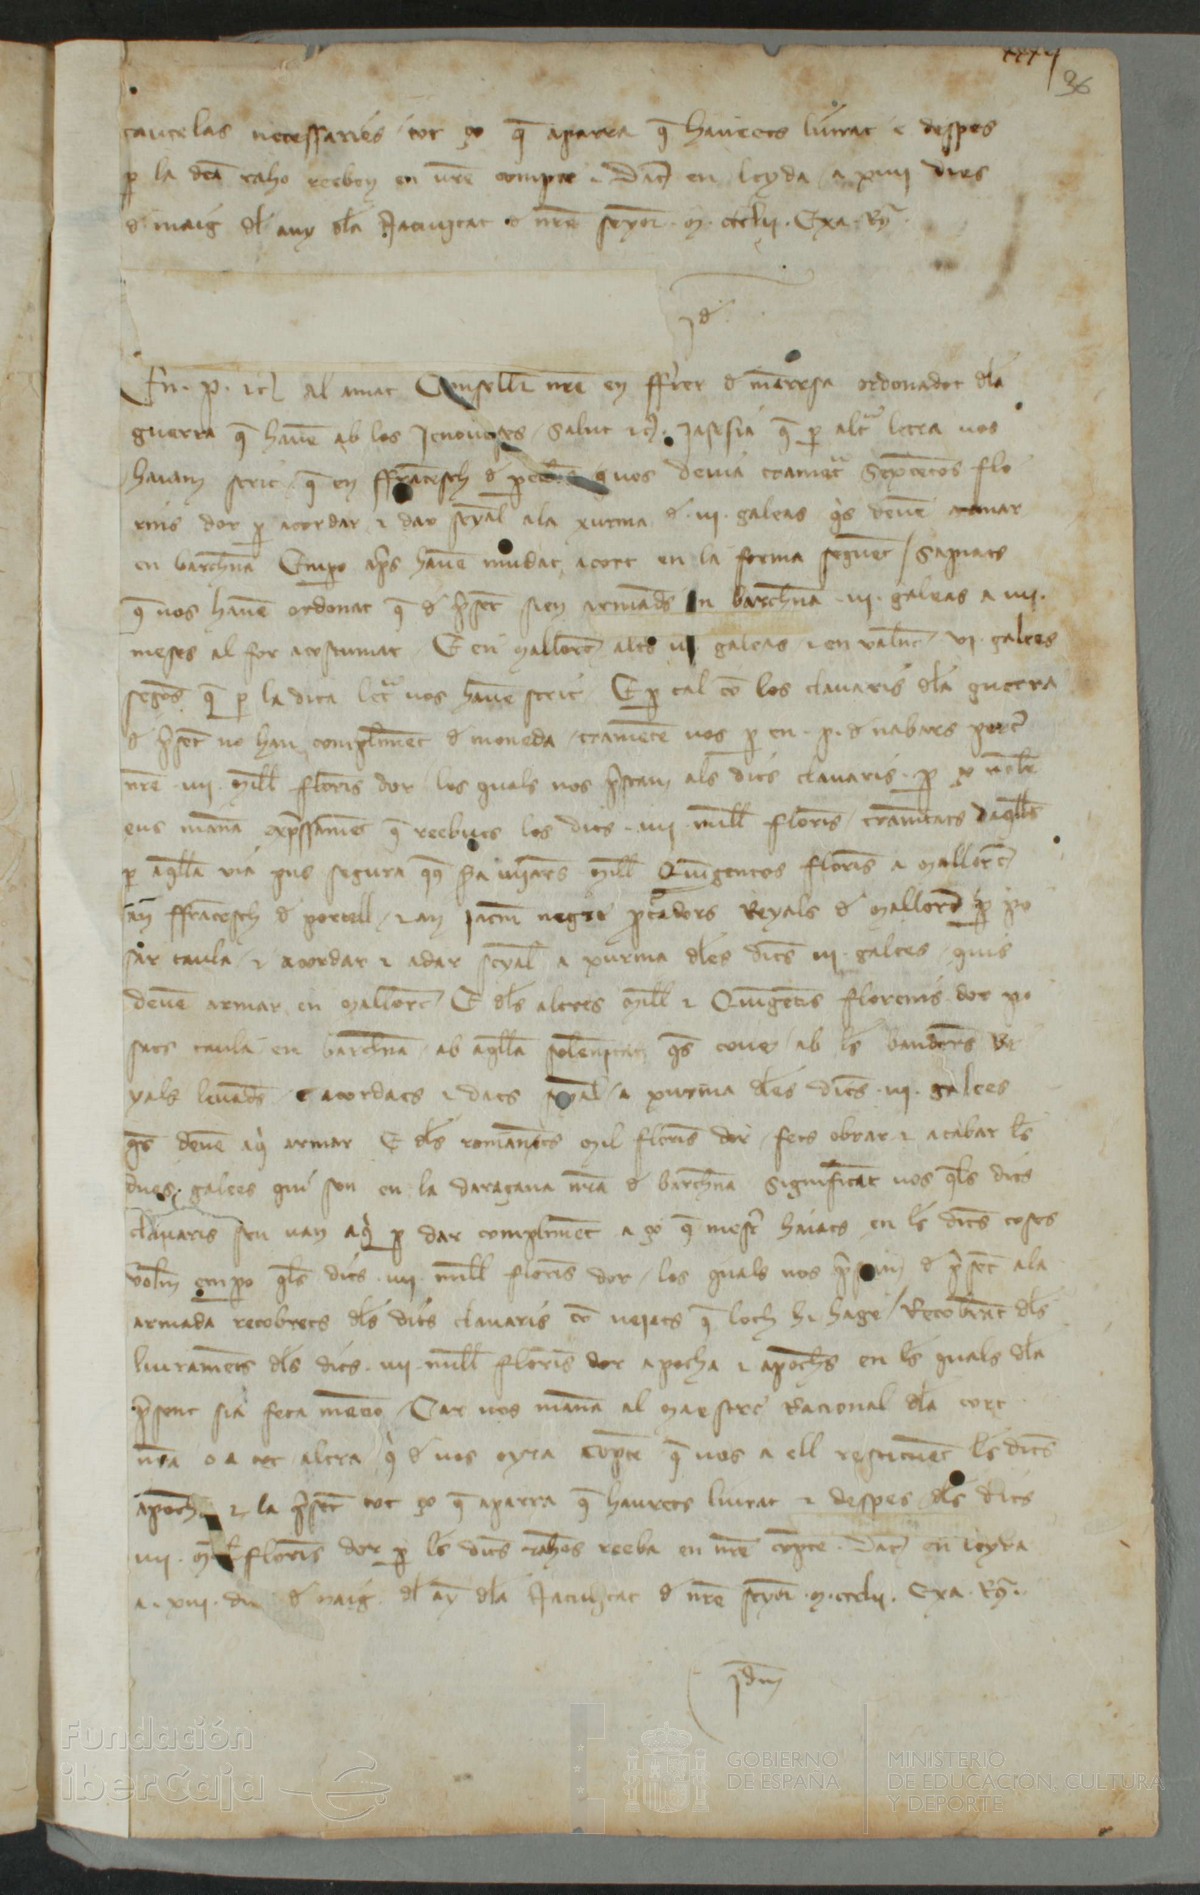 xxxvj
36
cautelas necessaries tot ço q̄ aparra q̄ haurets liurat e despes
p̱ la dc̄a raho reeben en vrē compte ⁊ Dat̄ en leyda a xviij dies
d maig dl̄ any dl̄a Natiuitat d nrē senyor · M · ccclij · Exa · Rͣ ·
jd
En · p · ⁊c̄ al amat Conseller nrē en fferrer d manresa ordonador dl̄a
guerra q̄ hauē ab los Jenoueses Salut ⁊c̄ · Jassia q̄ p̱ altͣ letra vos
haiam scrit q̄ en ffrācesch d q̄ vos deuia trametͬ Setcētos flo
rins dor p̱ acordar ⁊ dar senyal ala xurma d · iij · galeas q̄s deuē armar
en barchn̄a Emp̱o ap̄s hauē mudat acort en la forma seguēt / Sapiats
q̄ nos hauē ordonat q̄ d p̄sēt sien armads en barchn̄a · iij · galeas a iiij ·
meses al for acostumat / E en Mallorc̄ alts iij galeas ⁊ en valenc̄ / vj · galees
segōs q̄ p̱ la dita letͣ vos hauē scrit / E p̱ tal cō los clauaris dl̄a guerra
d p̄sēt no han complimēt d moneda / trametē vos p̱ en · p · d nabars port̄
nrē · iiij · Mill florīs dor / los quals nos p̄stam als dits clauaris · p̱ q̄
eus manā exp̄ssamēt q̄ reebuts los dits · iiij · mill florīs / trametats daq̄lls
p̱ aq̄lla via pus segura Mill Quīgentos florīs a Mallorc̄
an ffrācesch d portell / ⁊ an Jacm̄ negre p̱cādors Reyals d Mallorc̄ p̱ po
sar taula / ⁊ acordar ⁊ adar senyal a xurma dl̄es dits iij · galees / quis
deuē armar en Mallorc̄ / E dl̄s altres Mill ⁊ Quīgēts florenis dor po
sats taula en barchn̄a / ab aq̄lla solēpnitat q̄s coue / ab ls̄ banders Re
yals leuads ⁊ acordats ⁊ dats senyal / a xurma dl̄es dits · iij · galees
q̄s deuē aq̇ armar E dl̄s romanēts Mil florīs dor / fets obrar ⁊ acabar ls̄
dues galees qui son en la daraçana nrā d barchn̄a Significāt vos q̄ls dits
clauaris sen van aq̇ p̱ dar complimēt a ço q̄ mesṫ haiats en ls̄ dits coses
volē emp̱o q̄ls dits · iiij · mill florīs dor / los quals nos p̄stam d p̄sēt ala
armada recobrets dl̄s dits clauaris cō veiats q̄ loch hi hage / Recobrāt dl̄s
liuramēts dl̄s dits · iiij · mill florīs dor apocha ⁊ apochs en ls̄ quals dl̄a
p̄sent sia feta mēcio / Car nos manā al Maestre Racional dl̄a cort
nrā o a tot altra q̇ d vos oyra cōpte q̄ vos a ell restituēt ls̄ dits
apochs ⁊ la p̄sēt tot ço q̄ aparra q̄ haurets liurat ⁊ despes dl̄s dits
iiij · M florīs dor p̱ ls̄ dits rahos reeba en vrē cōpte · Dat̄ en leyda
a · xviij · dies d maig · dl̄ any dl̄a Natiuitat d nrē senyor · M · ccclij · Exa · Rͣ ·
jdm
Fundación
iberCaja
GOBIERNO
DE ESPAÑA
MINISTERIO
DE EDUCACIÓN, CULTURA
Y DEPORTE